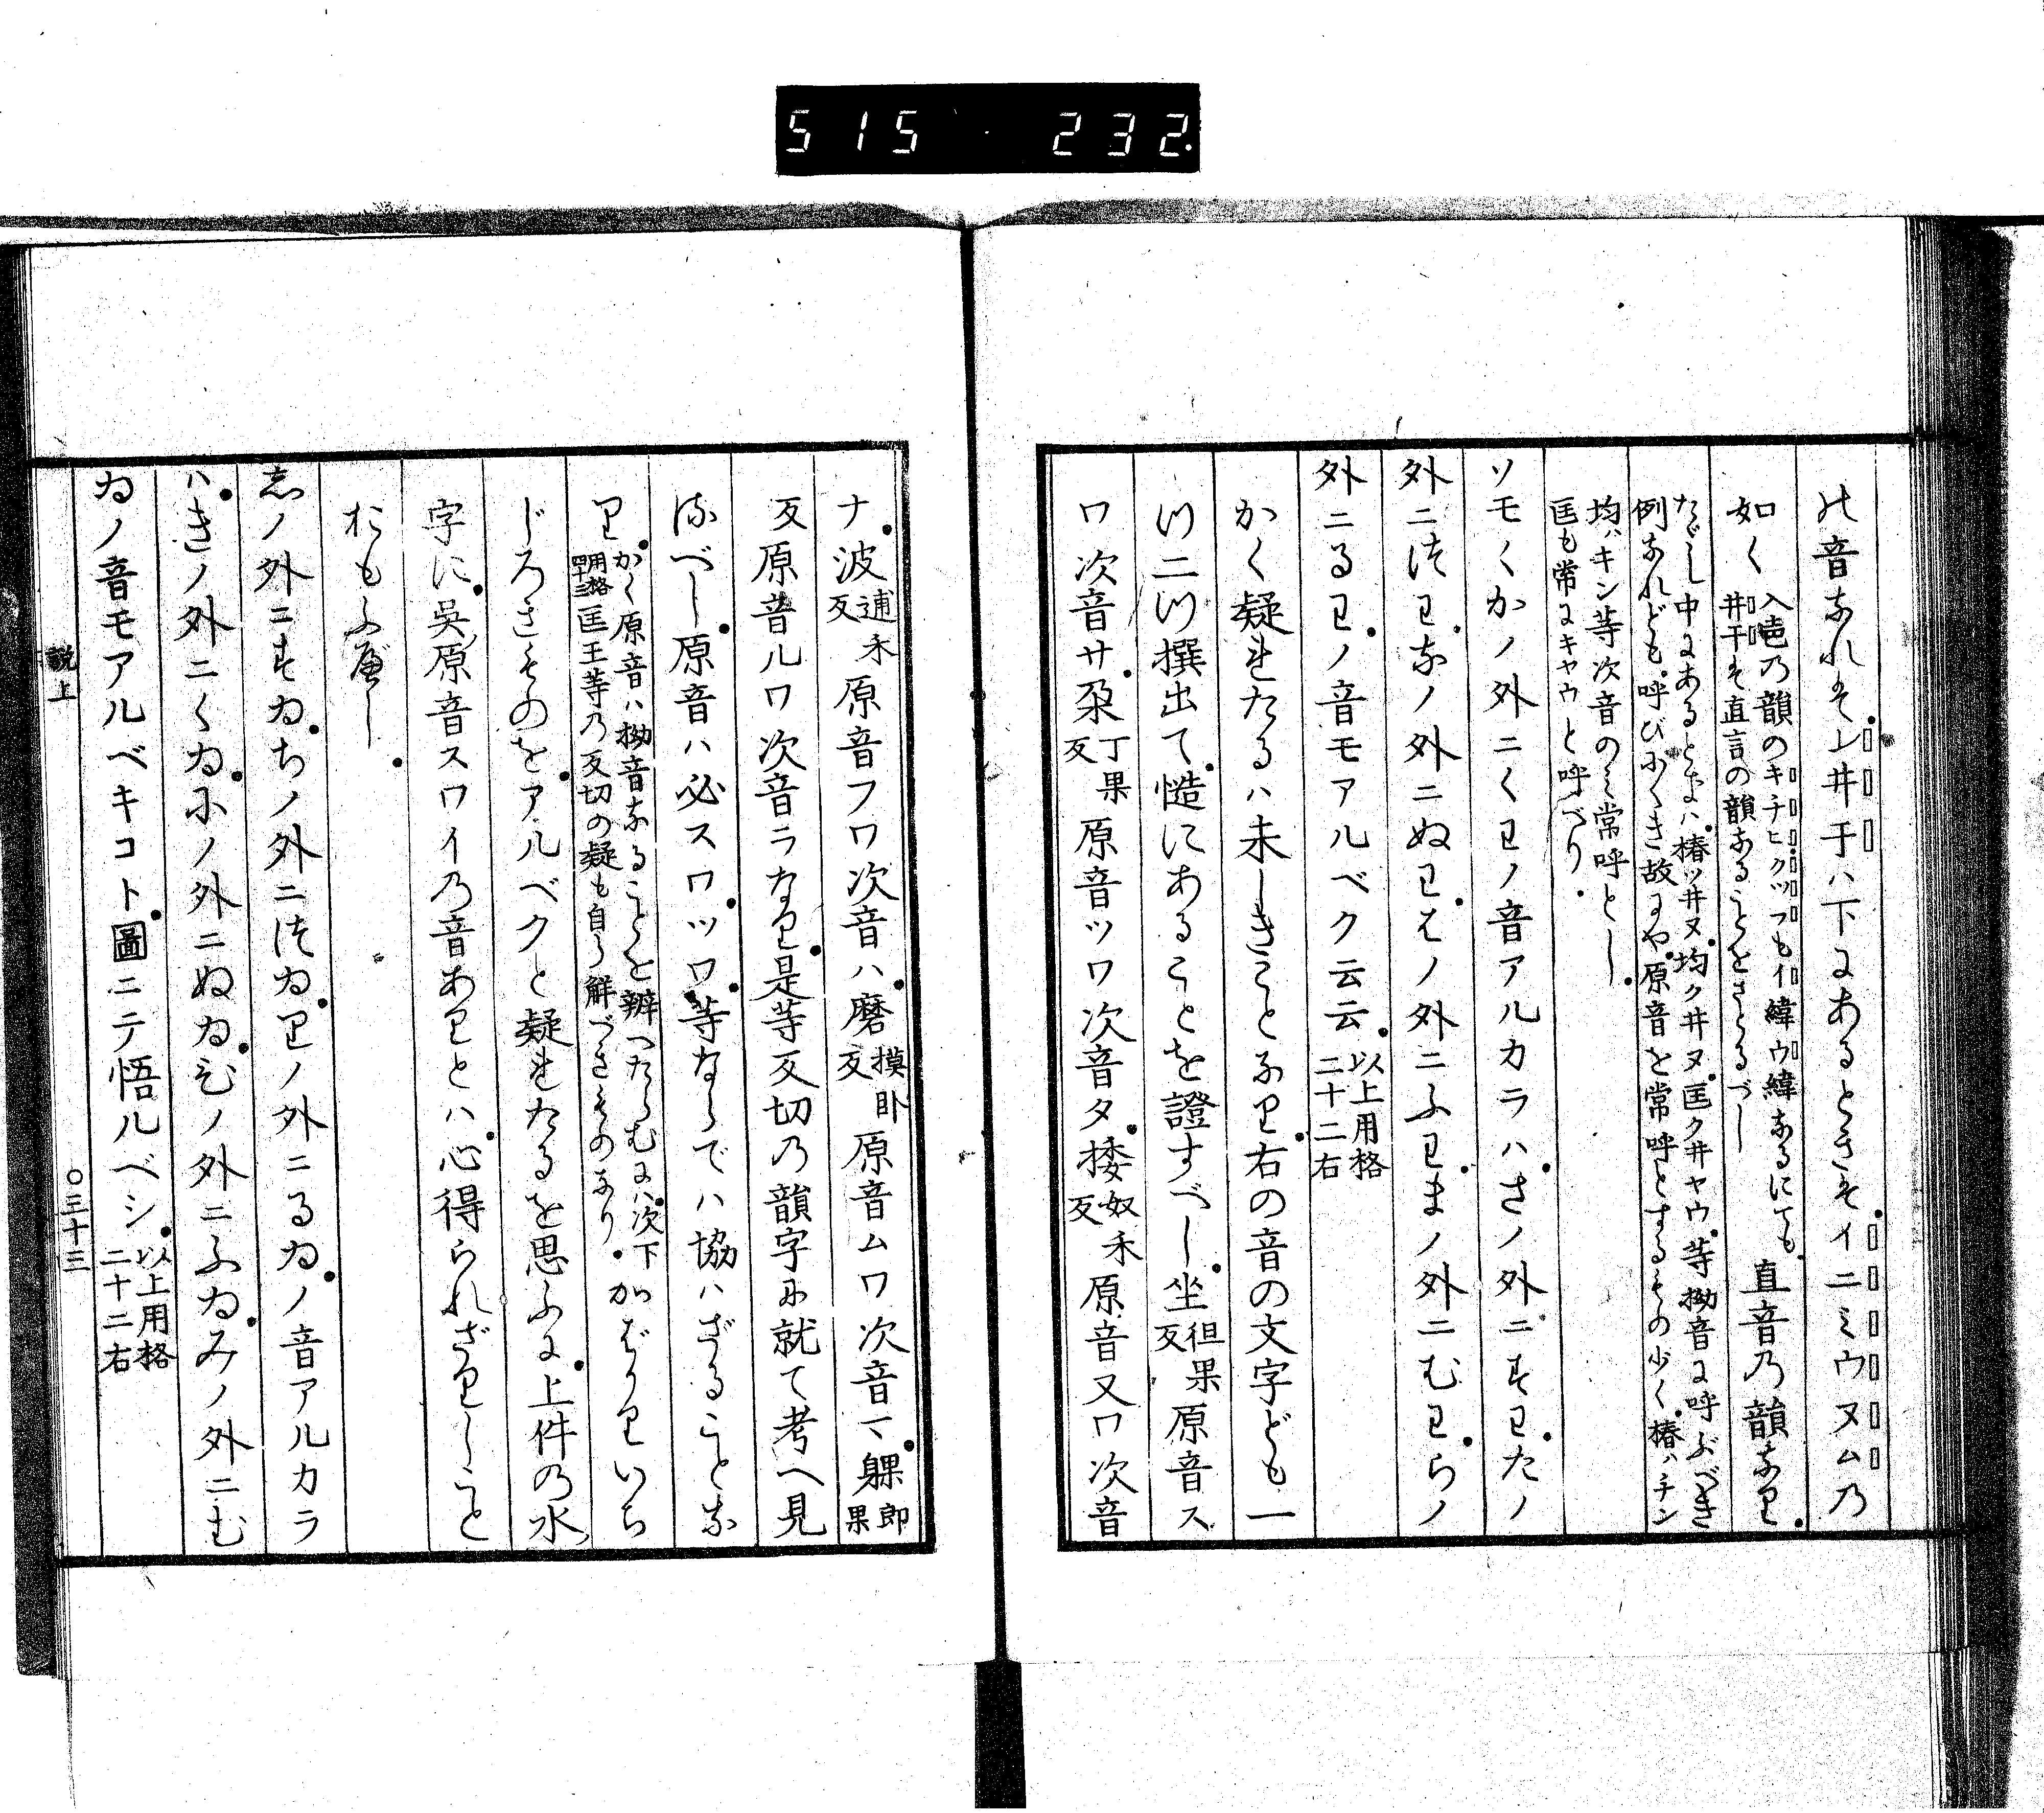 515 232.
の音なれば井于ハ下にあるときはイニミウヌムの
如く入声の韻のキチヒクツフもイ緯ウ緯なるにても
井于は直言の韻なることをさとるべし
直音の韻なり
たゞし中にあるときハ椿ツ井ヌ均ク井ヌ匡ク井ヤウ等拗音に呼ぶべき
例なれども呼びにくき故にや原音を常呼とするもの少く椿ハチン
均ハキン等次音のミ常呼とし
匡も常にキヤウと呼べり
ソモくかノ外ニくわノ音アルカラハさノ外ニすわたノ
外ニつわなノ外ニぬわはノ外ニふわまノ外ニむわらノ
外ニるわノ音モアルベク云云以上用格
二十二右
かく疑れたるハ未しきことなり右の音の文字ども一
ツ二ツ撰出て慥にあることを證すべし坐徂果反原音ス
ワ次音サ朶丁果反原音ツワ次音タ捼奴禾反原音ヌワ次音
ナ波逋禾反原音フワ次音ハ磨摸卧反原音ムワ次音マ躶郎果
反原音ルワ次音ラなり是等反切の韻字に就て考へ見
るべし原音ハ必スワツワ等ならでハ協ハざることな
り
かく原音ハ拗音なることを辨へたらむにハ次下
用格四十三匡王等の反切の疑も自ら解べきものなり
かばかりいち
じろきものをアルベクと疑れたるを思ふに上件の水
字に呉原音スワイの音ありとハ心得られざりしこと
おもふ應し
志ノ外ニすゐちノ外ニつゐりノ外ニるゐノ音アルカラ
ハきノ外ニくゐにノ外ニぬゐひノ外ニふゐみノ外ニむ
ゐノ音モアルベキコト圖ニテ悟ルベシ以上用格
二十二右
説上
〇三十三